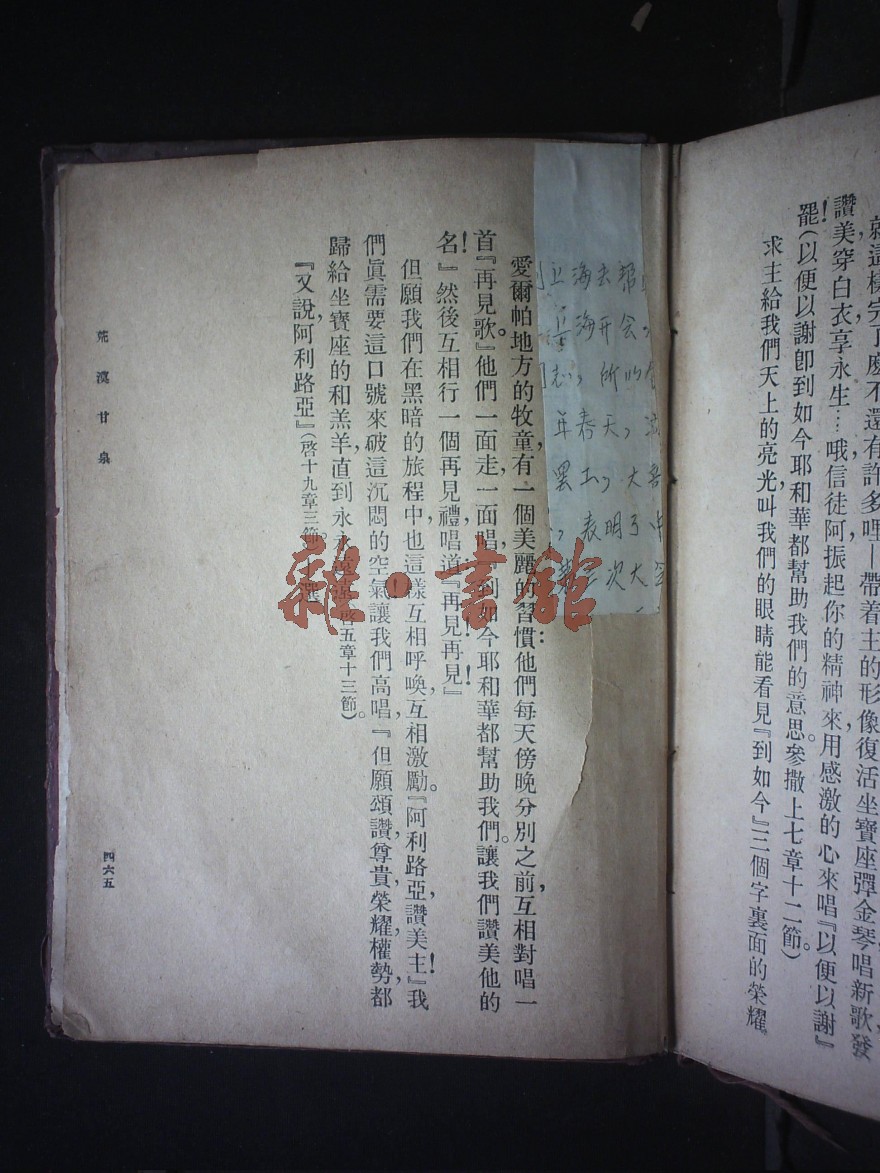 就這樣完了麼不，還有許多哩—帶着主的形像復活，坐寶座，彈金琴，唱新歌，發
讚美，穿白衣，享永生…哦，信徒阿，振起你的精神來，用感激的心來唱『以便以謝』
罷！(以便以謝卽到如今耶和華都幫助我們的意思。參撒上七章十二節。)
求主給我們天上的亮光，叫我們的眼睛能看見『到如今』三個字裏面的榮耀。
海去帮
海开会,
志, 所以
年春天,
罢工, 大
, 表明了 中
次大
愛爾帕地方的牧童，有一個美麗的習慣：他們每天傍晚分別之前，互相對唱一
首『再見歌。』他們一面走，一面唱『到如今耶和華都幫助我們。讓我們讚美他的
名！』然後互相行一個再見禮，唱道，『再見！再見！』
但願我們在黑暗的旅程中也這樣互相呼喚，互相激勵。『阿利路亞，讚美主！』我
們眞需要這口號來破這沉悶的空氣！讓我們高唱，『但願頌讚，尊貴，榮耀，權勢，都
歸給坐寶座的和羔羊，直到永永遠遠。』(啓五章十三節。)
『又說，阿利路亞。』(啓十九章三節。)—選
荒漠甘泉
四六五
雜·書館